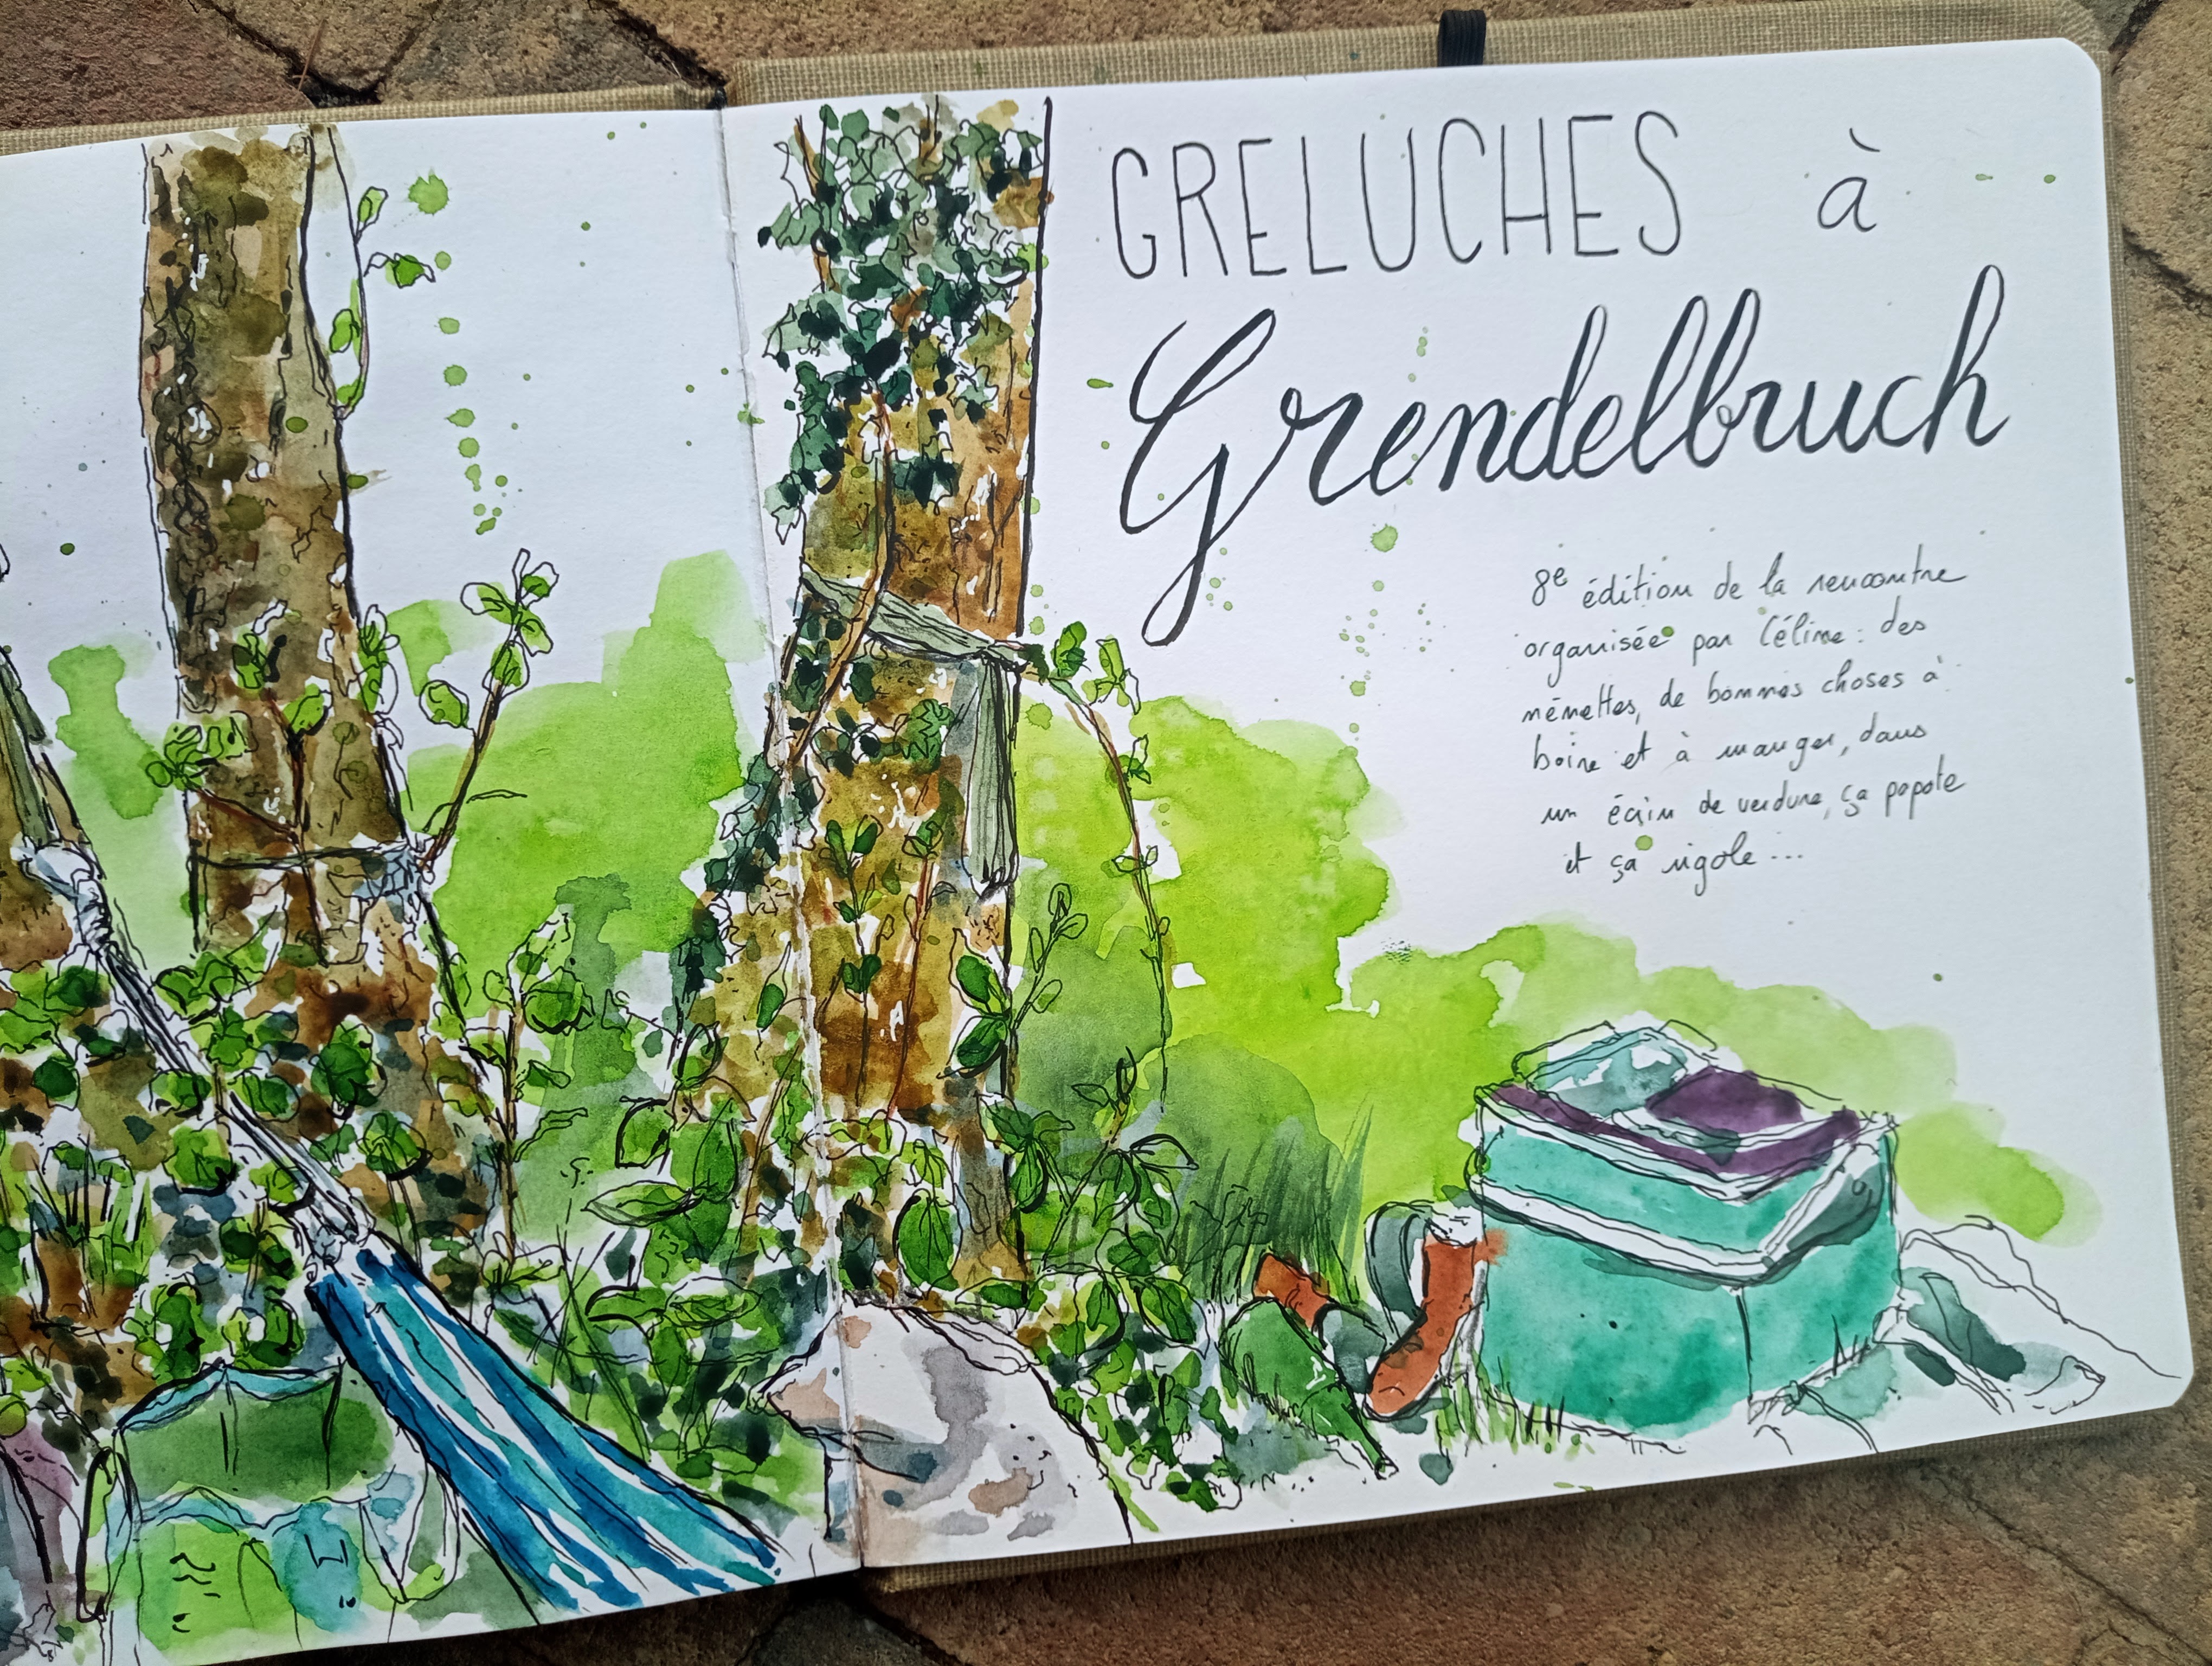 GRELUCHES à
Grendelbruch
8e édition de la rencontre
organisée par Céline : des
mémettes, de bonnes choses à
boire et à manger, dans
un écrin de verdure, ça papote
et ça rigole ...